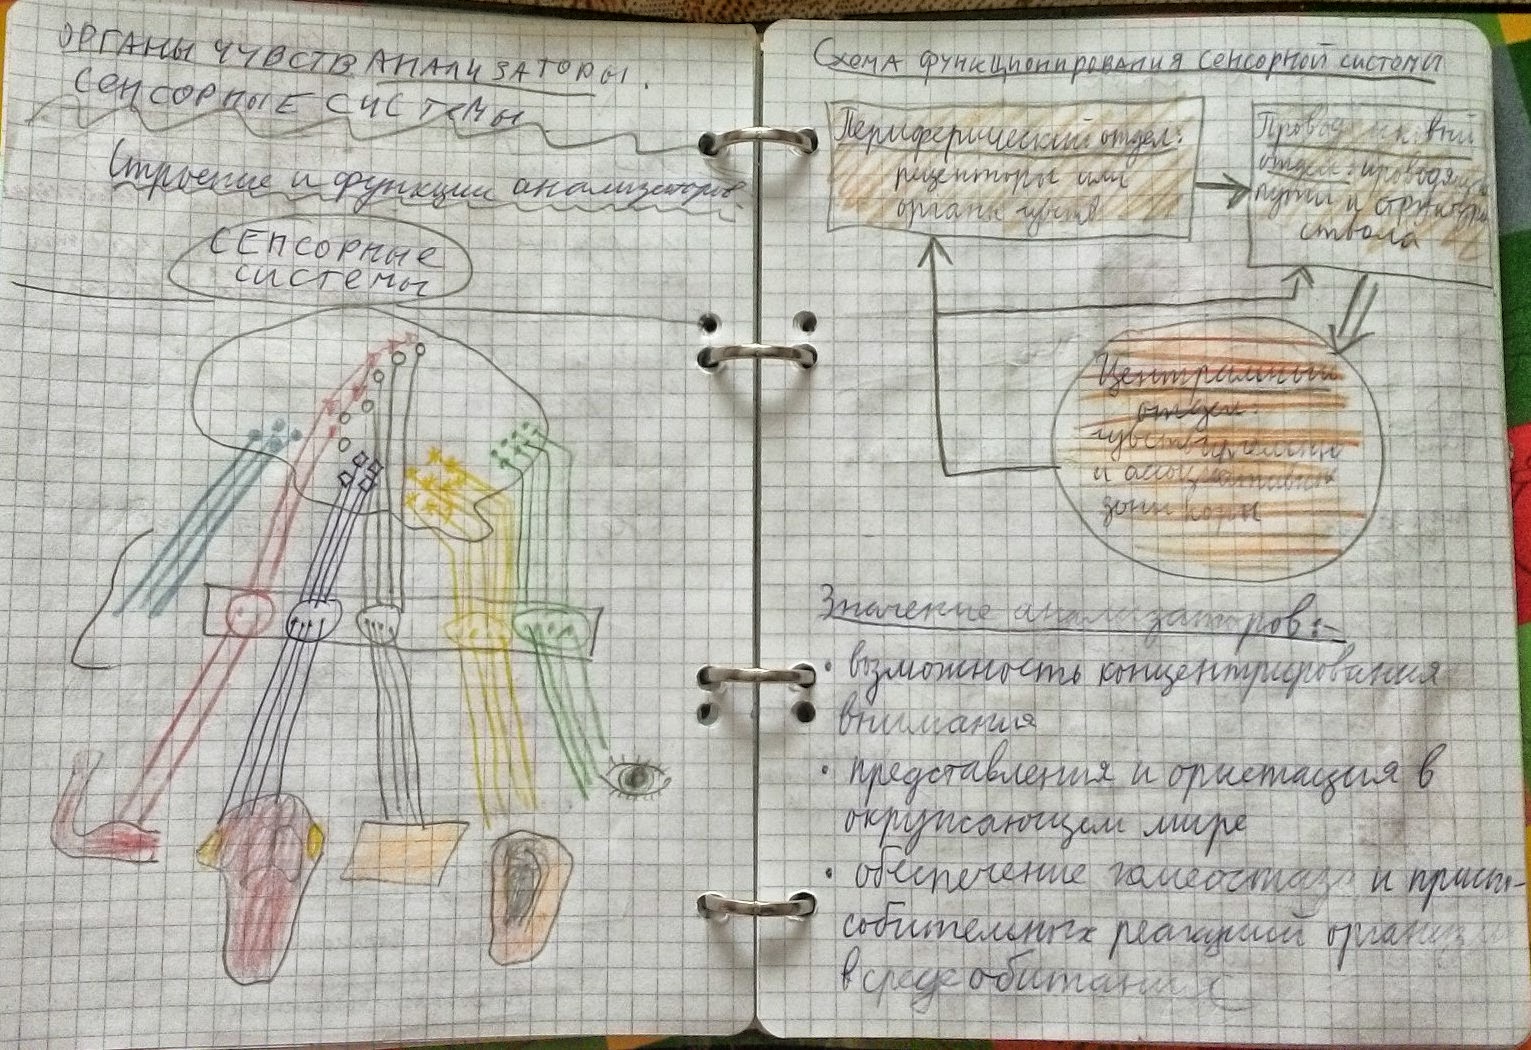 ОРГАНЫ ЧУВСТВ АНАЛИЗАТОРЫ.
СЕНСОРНЫЕ СИСТЕМЫ
Строение и функции анализаторов
СЕНСОРНЫЕ
СИСТЕМЫ
Схема функционирования сенсорной системы
Периферический отдел:
рецепторы или
органы чувств
отдел: проводящие
пути и структуры
ствола
Центральный
отдел:
чувствительные
и ассоциативные
зоны коры
Значение анализаторов:-
• возможность концентрирования
внимания
• представления и ориетация в
окружающем мире
• обеспечение гомеостаза и приспо-
собительных реакций
в среде обитания